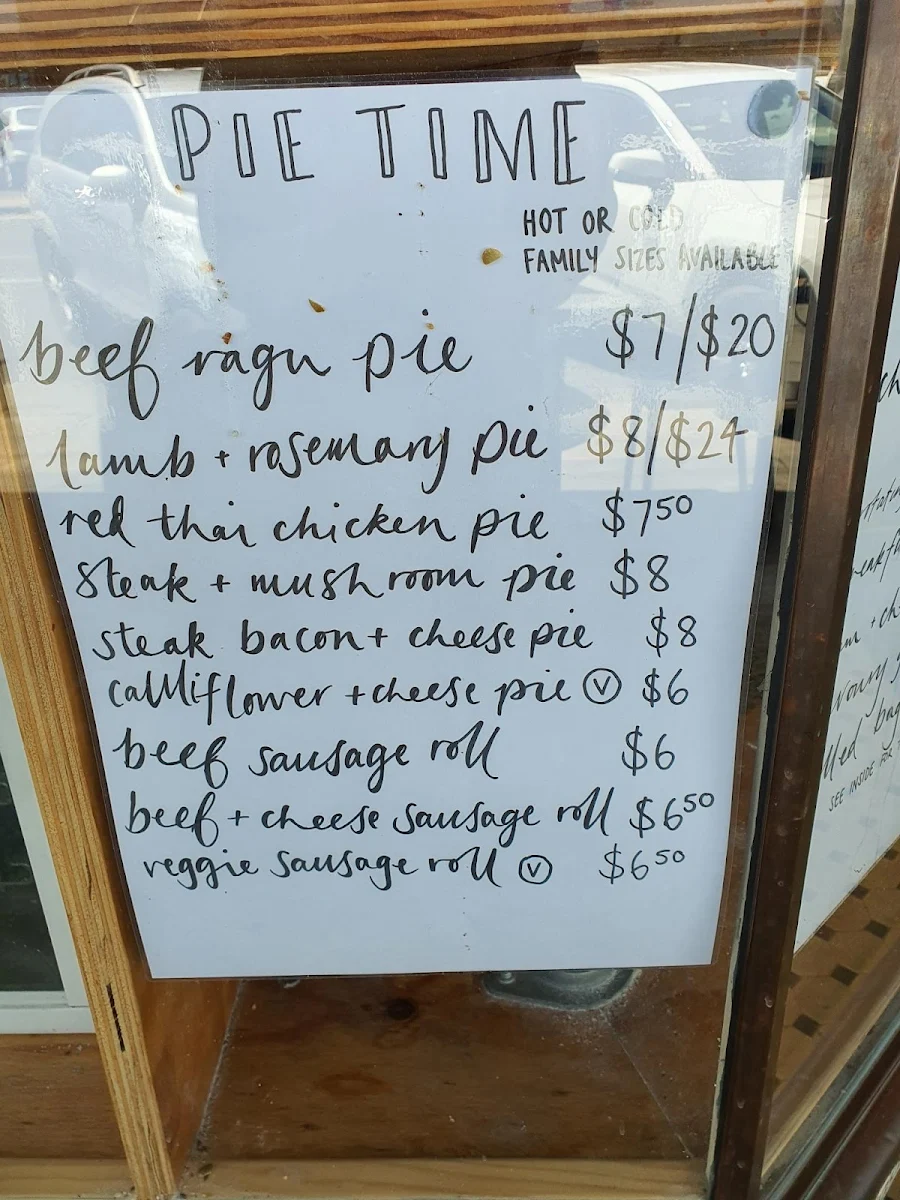 PIE TIME
HOT OR COLD
FAMILY SIZES AVAILABLE
beef ragu pie $7/$20
lamb + rosemary pie $8/$24
red thai chicken pie $7.50
steak + mushroom pie $8
steak bacon + cheese pie $8
cauliflower + cheese pie Ⓥ $6
beef sausage roll $6
beef + cheese sausage roll $6.50
veggie sausage roll Ⓥ $6.50
SEE INSIDE FOR